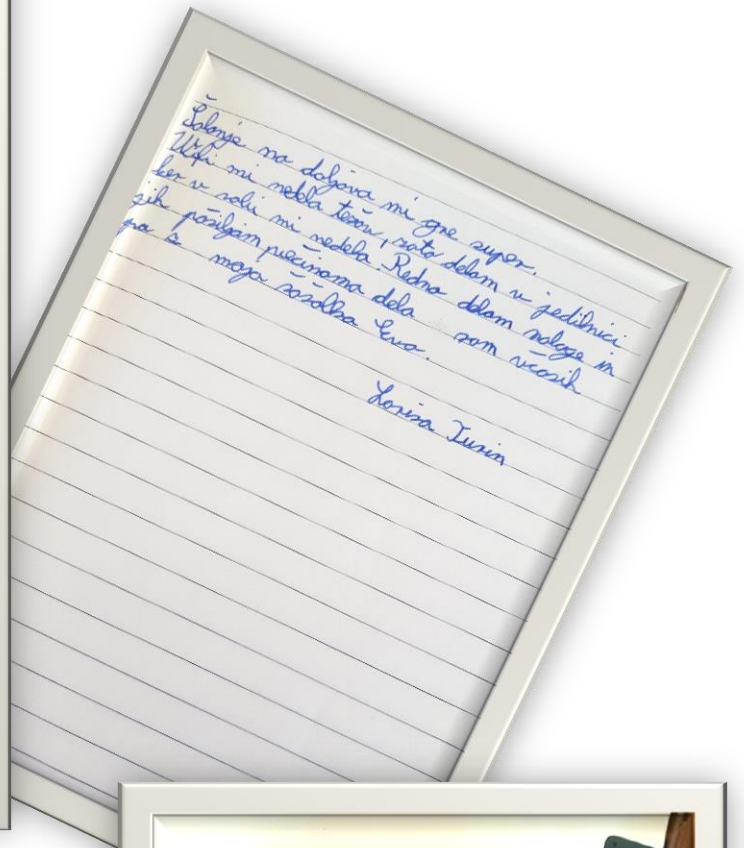 Šolanje na daljava mi gre super.
Wifi mi nebba težav, zato delam v jedilnici
ker v sobi mi nedela. Redno delam naloge in
jih pošiljam večinama dela som včasih
pa z moja sošolka Eva.
Lorisa Turin